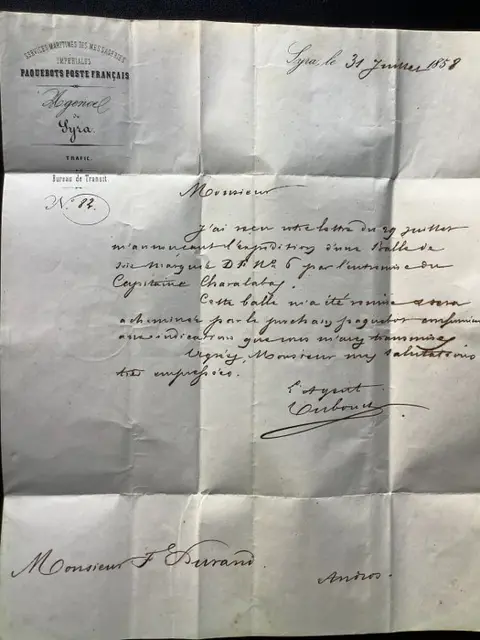 SERVICES MARITIMES DES MESSAGERIES
IMPÉRIALES
PAQUEBOTS POSTE FRANÇAIS
Agence
de
Syra.
TRAFIC
Bureau de Transit
N° 82.
Syra, le 31 Juillet 1858
Monsieur
J'ai reçu votre lettre du 29 juillet
m'annonçant l'expédition d'une Balle de
soie marquée D F N° 6 par l'entremise du
Capitaine Charalabas.
Cette balle m'a été remise & sera
acheminée par le prochain paquebot conformément
aux indications que vous m'avez transmises
Agréez, Monsieur mes salutations
très empressées.
L'Agent
Monsieur F. Durand.
Andros.